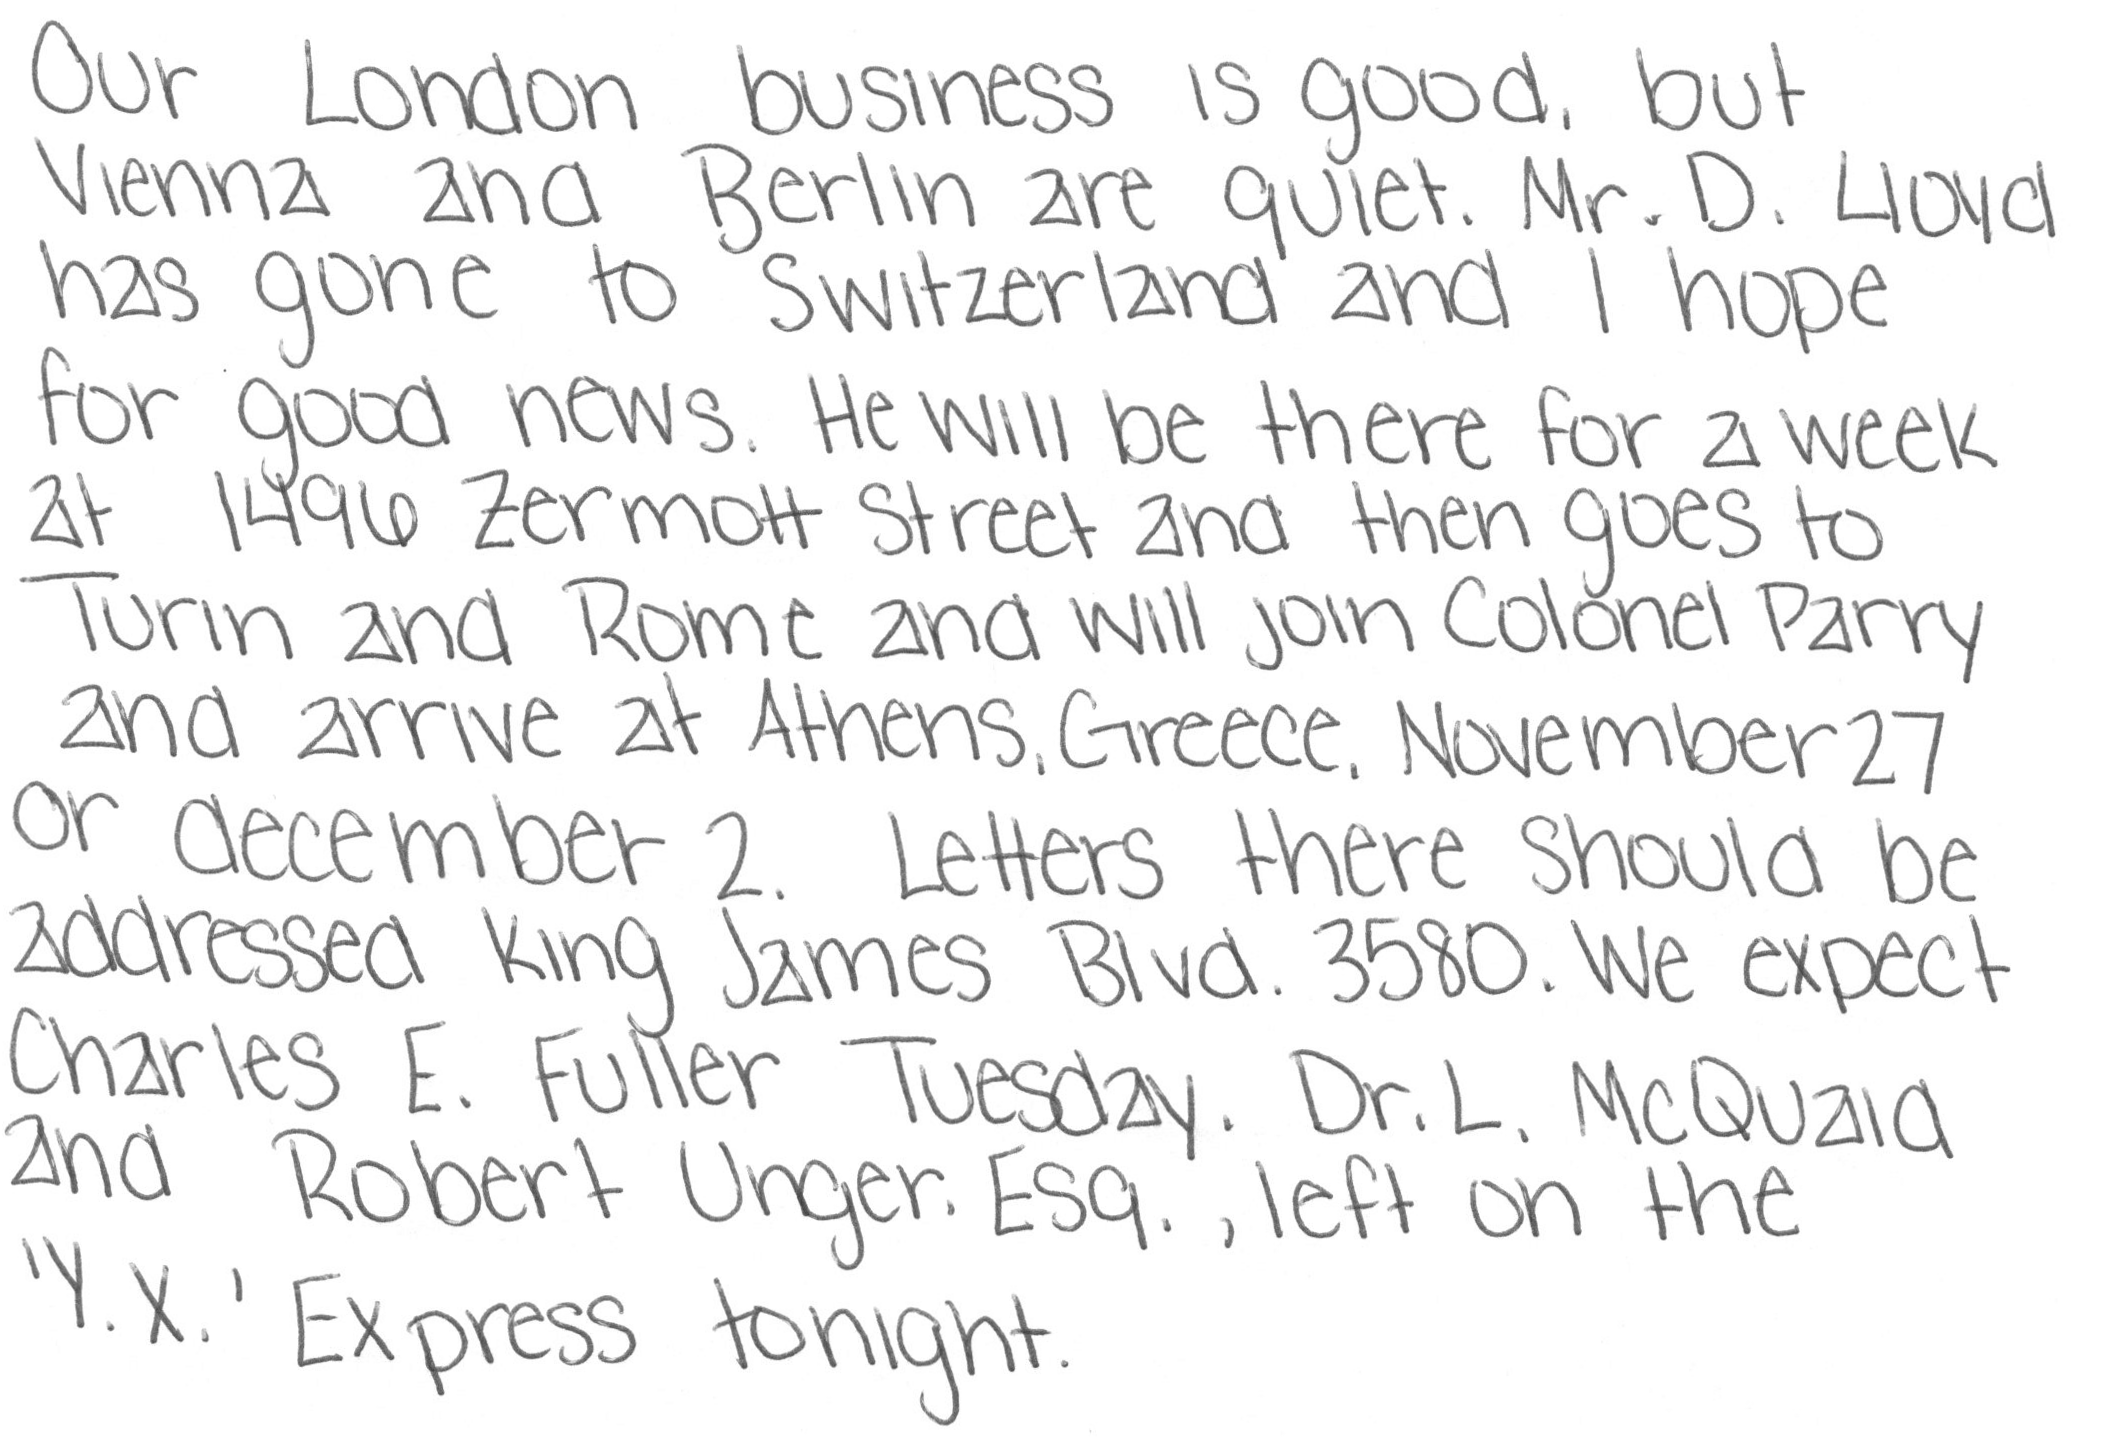 Our London business is good, but
Vienna and Berlin are quiet. Mr. D. Lloyd
has gone to Switzerland and I hope
for good news. He will be there for a week
at 1496 Zermott Street and then goes to
Turin and Rome and will join Colonel Parry
and arrive at Athens, Greece, November 27
or december 2. Letters there should be
addressed King James Blvd. 3580. We expect
Charles E. Fuller Tuesday. Dr. L. McQuaid
and Robert Unger. Esq., left on the
'Y.X.' Express tonight.